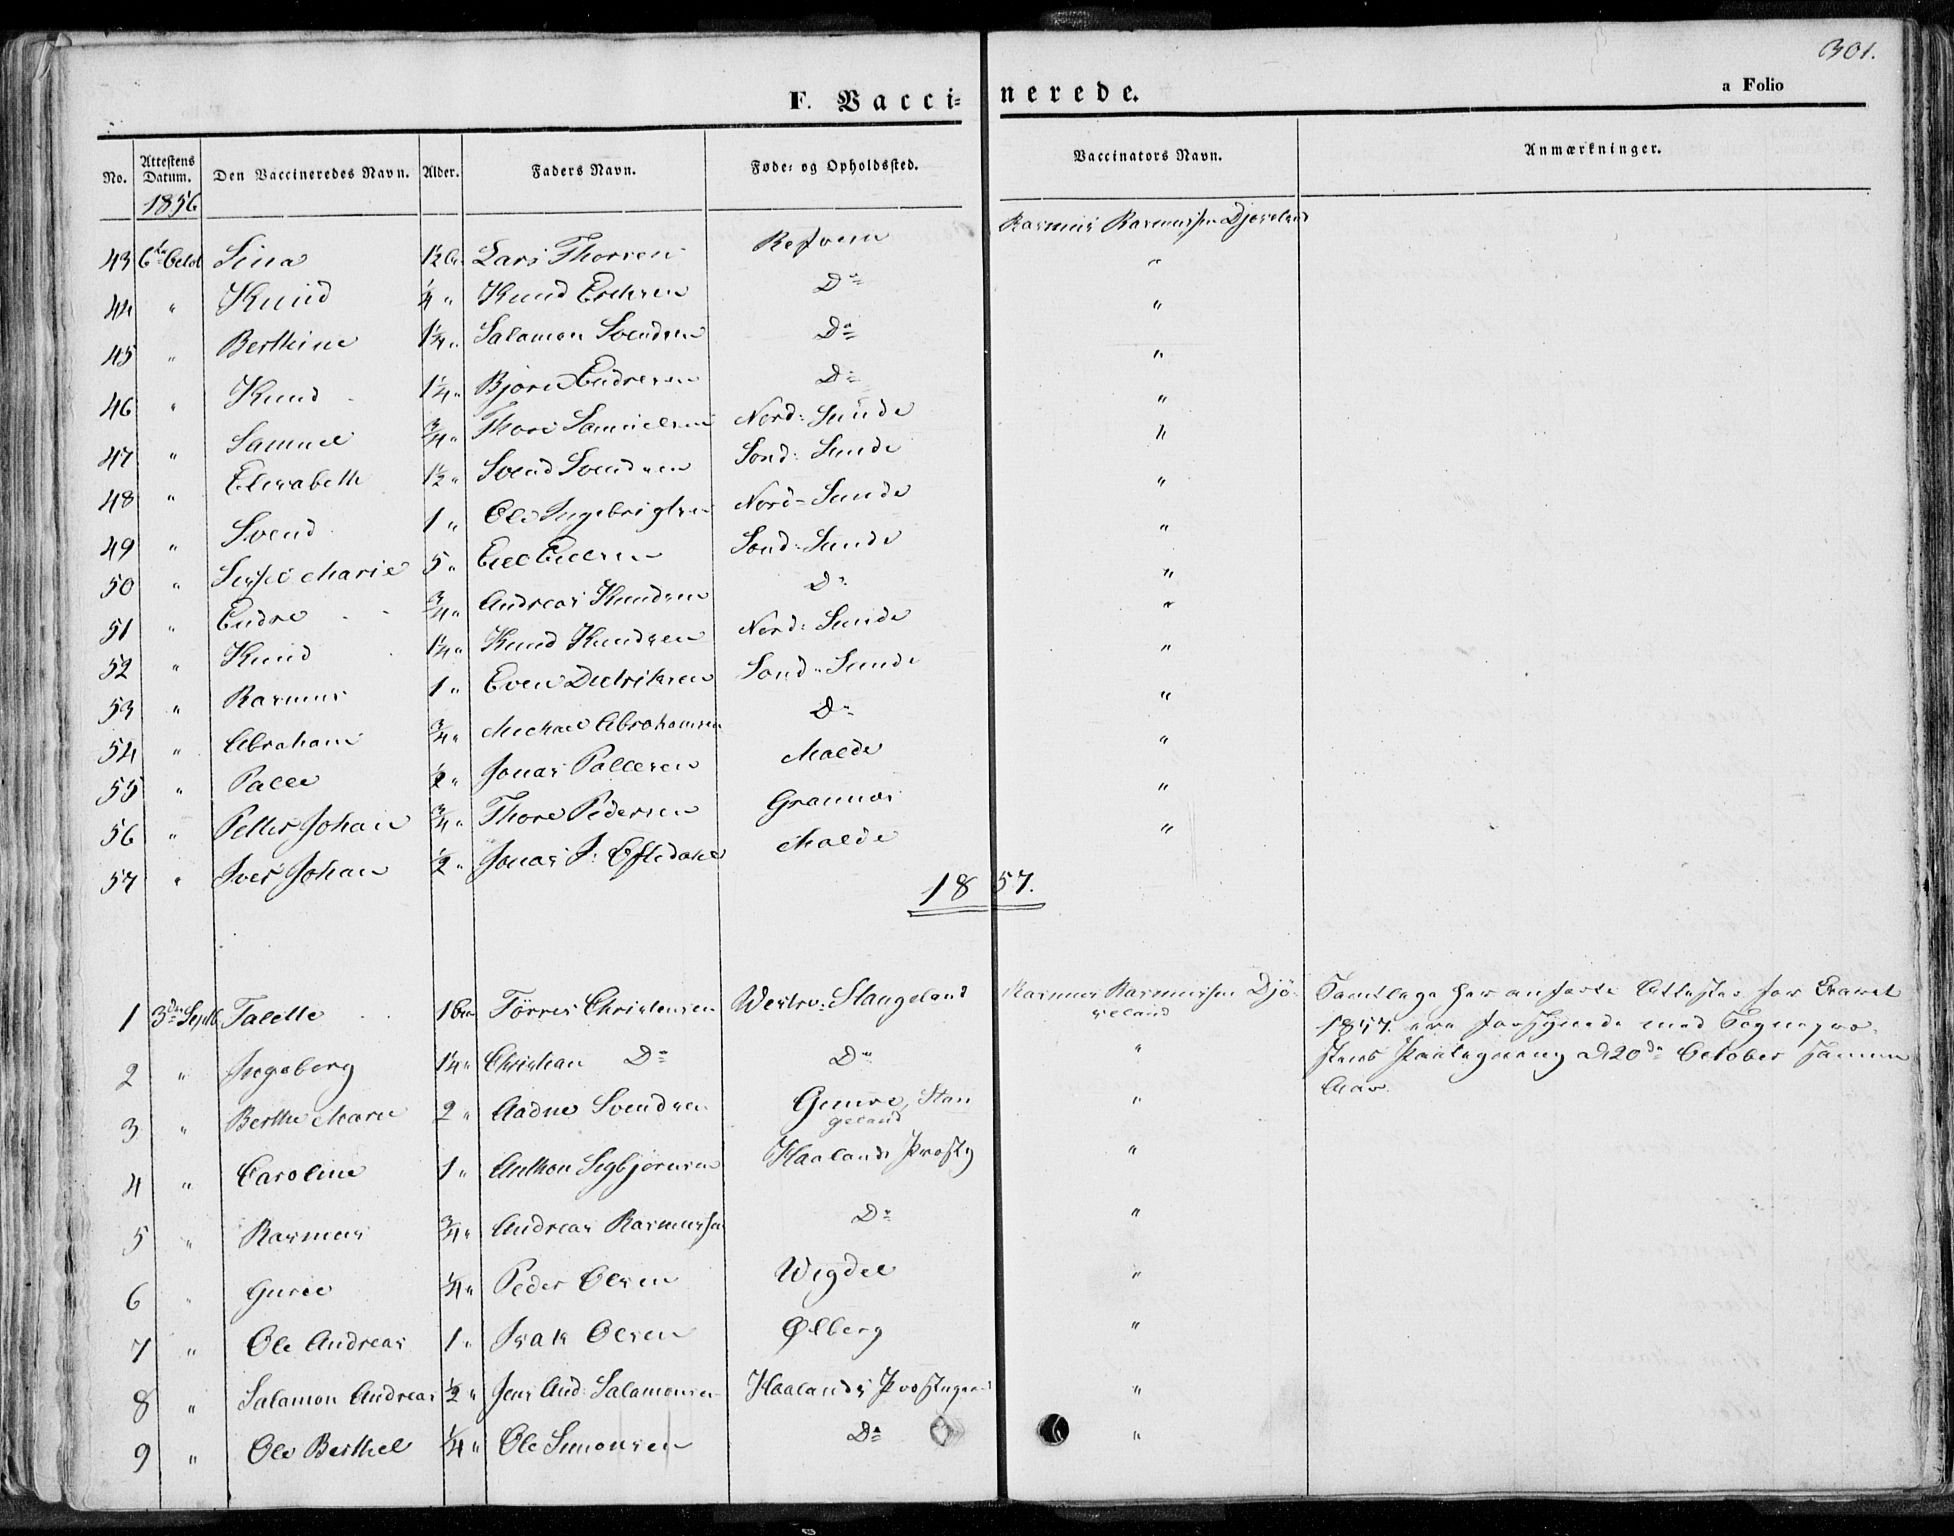 301.
F. Vaccinerede.
a Folio
No. Attestens Datum. Den Vaccineredes Navn. Alder. Faders Navn. Føde- og Opholdssted. Vaccinators Navn. Anmærkninger.
1856
43 6te Octob Sina 1½ Lars Thorsen Refsven Rasmus Rasmussen Djøseland
44 " Knud ¼ " Knud Ericksen Do "
45 " Berthine 1¼ " Salamon Svendsen Do "
46 " Knud 1¼ " Bjørn Endresen Do "
47 " Samuel ¾ " Thore Samuelsen Nord-Sunde "
48 " Elisabeth 1½ " Svend Svendsen Sond-Sunde "
49 " Svend 1 " Ole Ingebrigtsen Nord-Sunde "
50 " Marie 5 " Sond-Sunde "
51 " Endre ¾ " Andreas Knudsen Do "
52 " Knud 1¼ " Knud Knudsen Nord-Sunde "
53 " Rasmus 1 " Even Dedriksen Sond-Sunde "
54 " Abraham ¾ " Michael Abrahamsen Do "
55 " Palle ½ " Jonas Pallesen Malde "
56 " Petter Johan ¾ " Thore Pedersen Grannes "
57 " Iver Johan ½ " Jonas J: Malde "
1857.
1 3die Septb Talette 1 Törres Christensen Westre-Stangeland Rasmus Rasmussen Djöseland Samtlige her anførte Attester for Aaret
1857. ere forsynede med Sognepræ-
stens Paategning d. 20de October samme
Aar.
2 " Ingeborg 1¼ " Christian Do Do "
3 " Berthe Marie 2 " Aadne Svendsen Gimre, Stangeland "
4 " Caroline 1 " Anthon Sigbjørnsen Haalands Præstg "
5 " Rasmus ¾ " Andreas Rasmussen Do "
6 " Guroe ¼ " Peder Olsen Wigdel "
7 " Ole Andreas 1 " Isak Olsen Ølberg "
8 " Salamon Andreas ½ " Jens And: Salamonsen Haalands Præstegaard "
9 " Ole Berthel ¼ " Ole Simonsen Do "